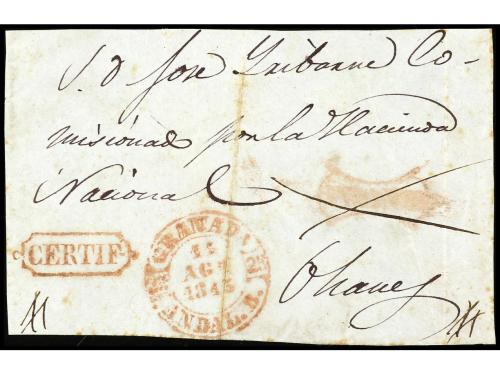 S. D. Jose Yribarne Co-
misionado por la Hacienda
Nacional
CERTIF
GRANADA
AGO
1843
ANDAL. B.
Ohanes